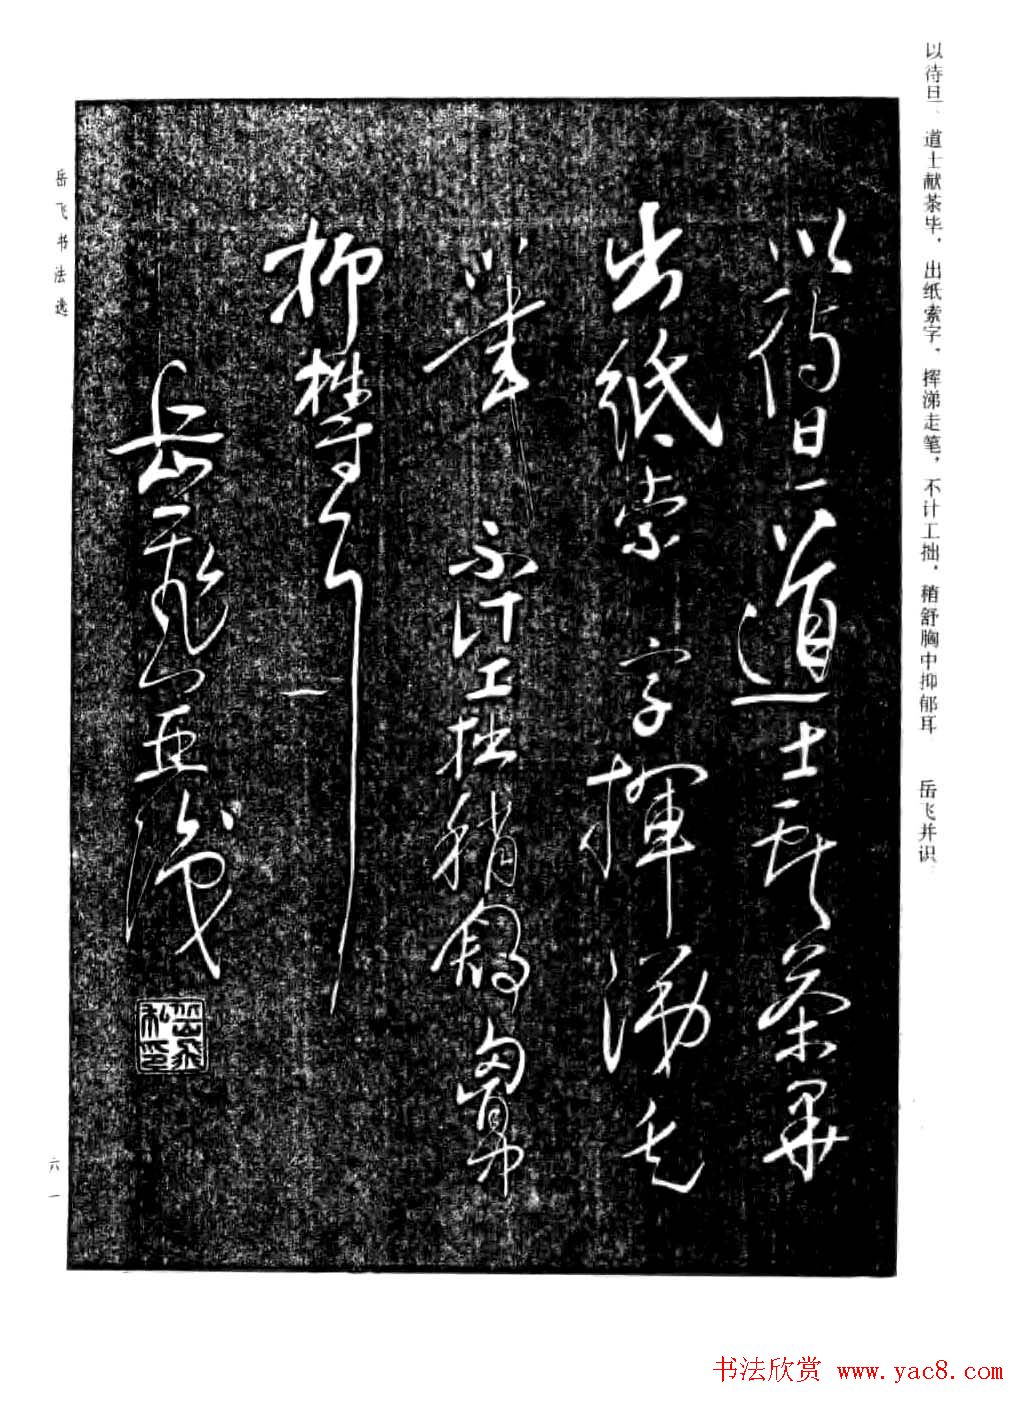 以待旦 道士献茶毕，出纸索字，挥涕走笔，不计工拙，稍舒胸中抑郁耳 岳飞并识
以待旦道士献茶畢
出紙索字揮涕走
筆不計工拙稍舒胸中
抑鬱耳
岳飛並識
岳飛私印
岳飞书法选
六一
书法欣赏 www.yac8.com